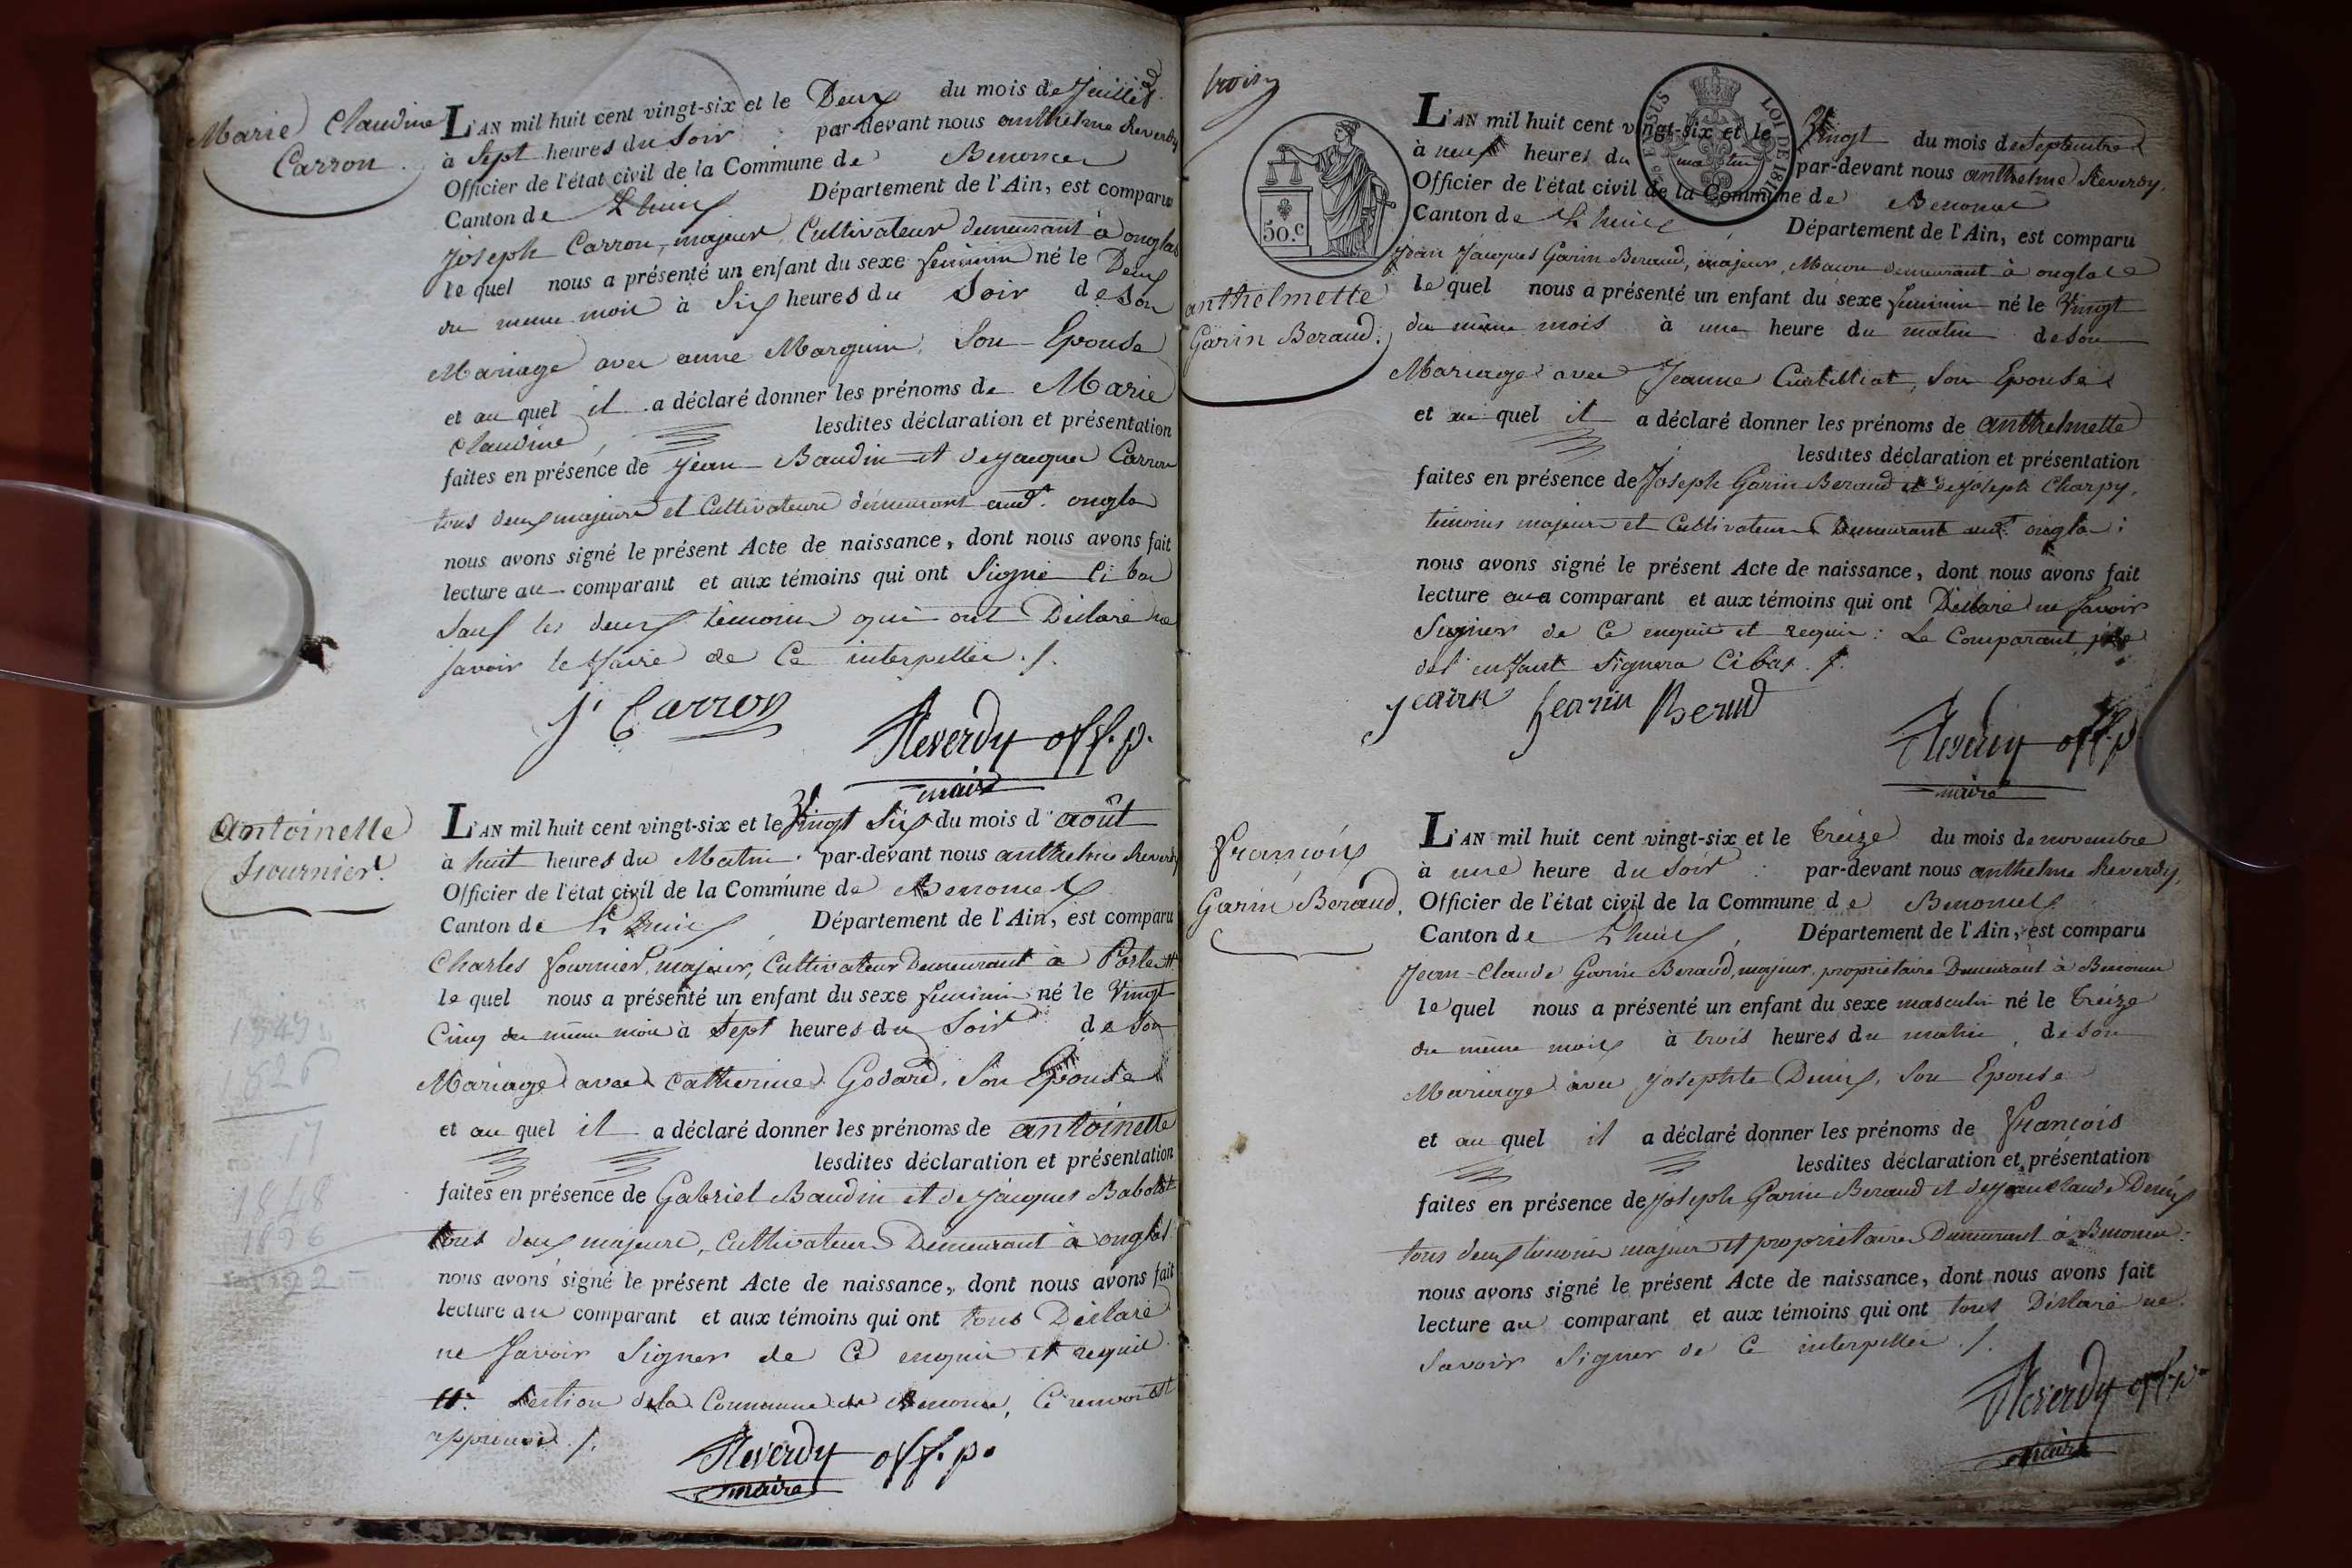 Marie Claudine
Carron.
L'AN mil huit cent vingt-six et le Deux du mois de Juillet
à Sept heures du Soir : par-devant nous anthelme Reverdy
Officier de l'état civil de la Commune de Benonces
Canton de Lhuis Département de l'Ain, est comparu
Joseph Carron, majeur, Cultivateur demeurant à onglas
le quel nous a présenté un enfant du sexe feminin né le Deux
du meme mois à Six heures du Soir de son
Mariage avec anne Marguin, Son Epouse
et au quel il a déclaré donner les prénoms de Marie
Claudine, lesdites déclaration et présentation
faites en présence de Jean Baudin et de jacques Carron
tous deux majeurs et Cultivateurs demeurant aud.t onglas
nous avons signé le présent Acte de naissance, dont nous avons fait
lecture au comparant et aux témoins qui ont Signé Ci bas
Sauf les deux temoins qui ont Déclaré ne
savoir le faire de Ce interpellés ./.
J. Carron
Reverdy off. p.
maire
Antoinette
Fournier.
L'AN mil huit cent vingt-six et le Vingt Six du mois d'août
à huit heures du Matin. par-devant nous anthelme Reverdy
Officier de l'état civil de la Commune de Benonces
Canton de Lhuis, Département de l'Ain, est comparu
Charles fournier, majeur, Cultivateur Demeurant à Portes #
le quel nous a présenté un enfant du sexe feminin né le Vingt
Cinq du même mois à Sept heures du Soir de Son
Mariage avec Catherine Godard, Son Epouse
et au quel il a déclaré donner les prénoms de antoinette
lesdites déclaration et présentation
faites en présence de Gabriel Baudin et de jacques Babolat
tous deux majeurs, Cultivateurs Demeurant à onglas
nous avons signé le présent Acte de naissance, dont nous avons fait
lecture au comparant et aux témoins qui ont tous Déclaré
ne Savoir Signer de Ce enquis et requis.
#. Section de la Commune de Benonces, Ce renvoi est
approuvé ./.
Reverdy off. p.
maire
1843
1826
17
1848
1826
22
trois
50.c
LOI DE 181
anthelmette
Garin Beraud.
L'AN mil huit cent vingt-six et le Vingt du mois de Septembre
à neuf heures du matin par-devant nous anthelme Reverdy,
Officier de l'état civil de la Commune de Benonces
Canton de Lhuis, Département de l'Ain, est comparu
Jean Jacques Garin Beraud, majeur, Macon demeurant à onglas
le quel nous a présenté un enfant du sexe feminin né le Vingt
du même mois à une heure du matin de son
Mariage avec Jeanne Curtilliat, Son Epouse
et au quel il a déclaré donner les prénoms de anthelmette
lesdites déclaration et présentation
faites en présence de Joseph Garin Beraud et de joseph Charpy,
témoins majeurs et Cultivateurs Demeurant aud.t onglas :
nous avons signé le présent Acte de naissance, dont nous avons fait
lecture au comparant et aux témoins qui ont Déclaré ne Savoir
Signer de Ce enquis et requis : Le Comparant père
de l'enfant Signera Ci bas ./.
jean garin Beraud
Reverdy off. p
maire
François
Garin Beraud.
L'AN mil huit cent vingt-six et le treize du mois de novembre
à une heure du soir : par-devant nous anthelme Reverdy,
Officier de l'état civil de la Commune de Benonces
Canton de Lhuis, Département de l'Ain, est comparu
Jean-Claude Garin Beraud, majeur, proprietaire Demeurant à Benonces
le quel nous a présenté un enfant du sexe masculin né le treize
du même mois à trois heures du matin, de son
Mariage avec Josephte Denis, Son Epouse
et au quel il a déclaré donner les prénoms de François
lesdites déclaration et présentation
faites en présence de Joseph Garin Beraud et de jean Claude Denis
tous deux temoins majeurs et proprietaires Demeurant à Benonces.
nous avons signé le présent Acte de naissance, dont nous avons fait
lecture au comparant et aux témoins qui ont tous Déclaré ne
Savoir Signer de Ce interpellés ./.
Reverdy off. p.
maire